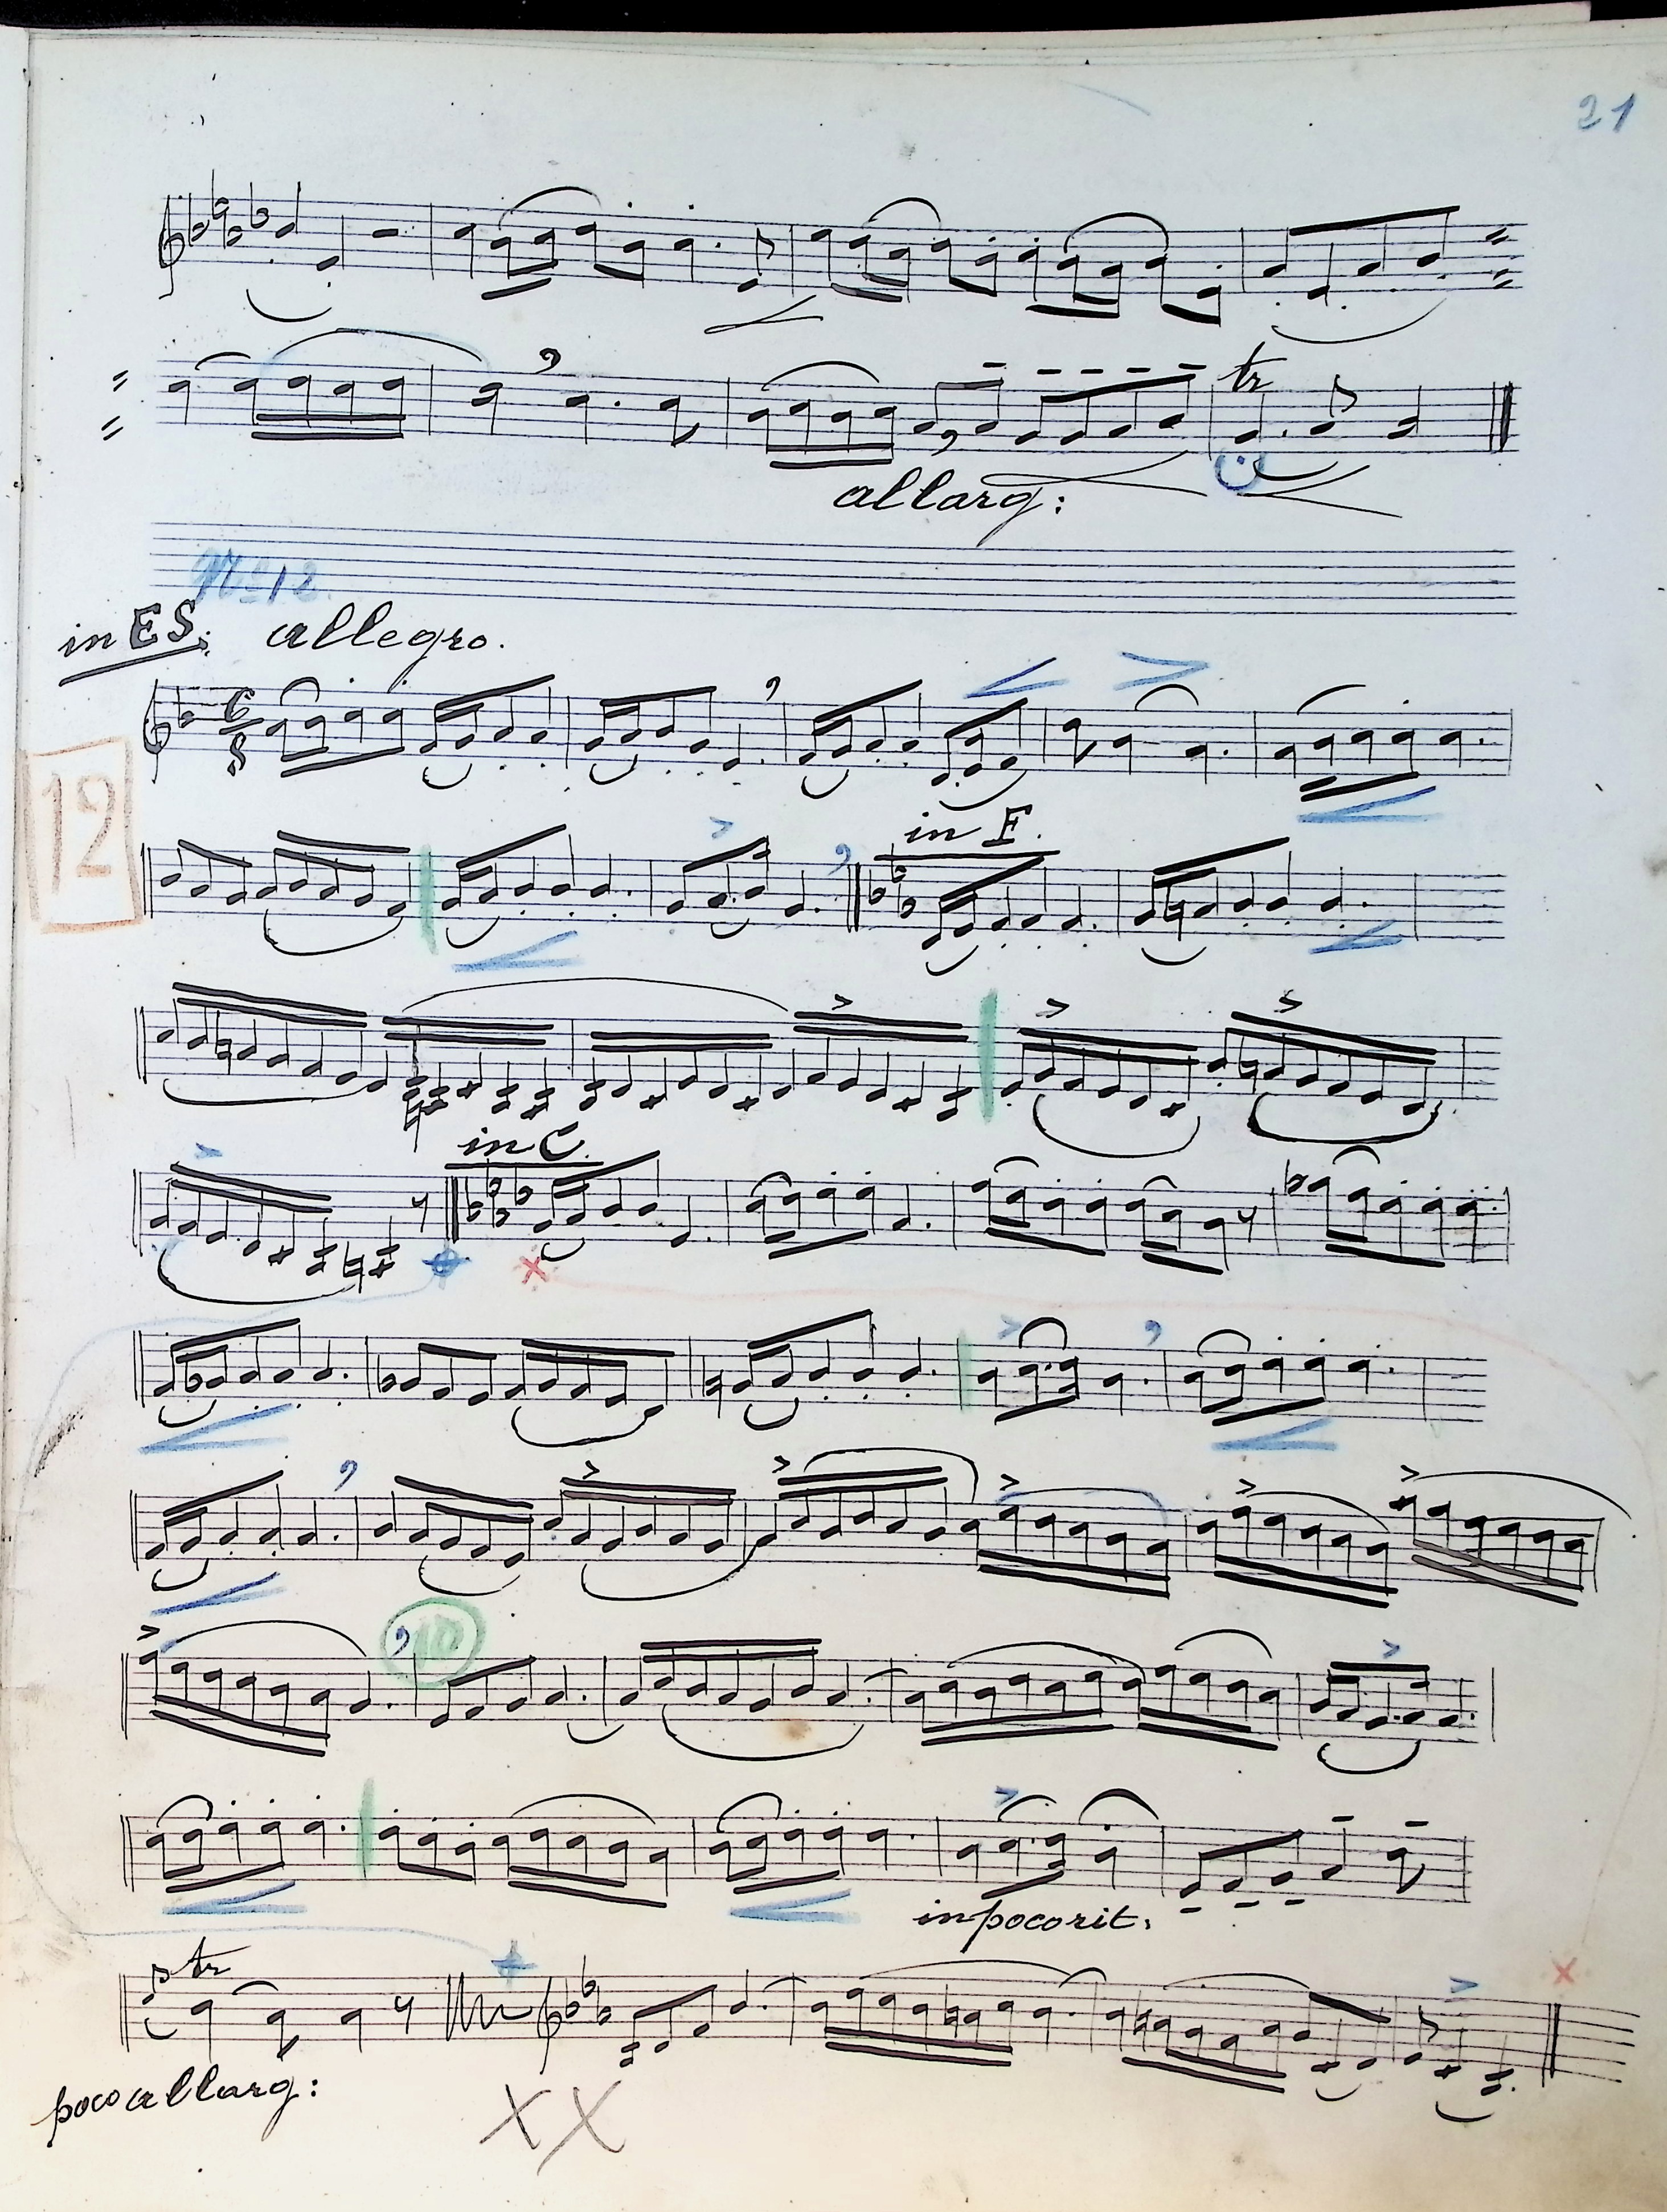 21
tr
allarg:
No 12.
in ES: allegro.
6
8
12
in F.
in C.
10
in poco rit.
tr
poco allarg:
XX